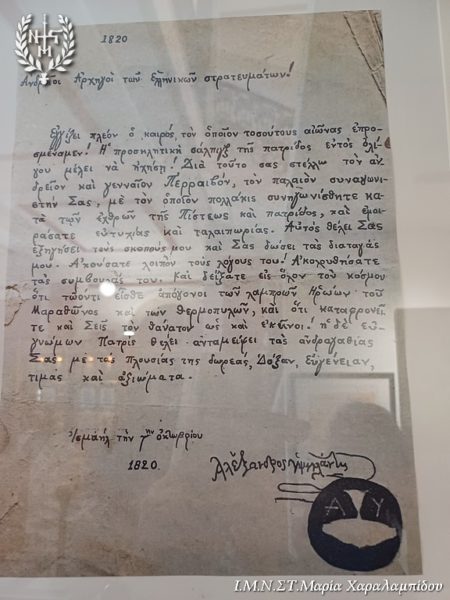 1820
Ανδρείοι Αρχηγοί των ελληνικών στρατευμάτων!
Εγγίζει πλέον ο καιρός, τον οποίον τοσούτους αιώνας επρο-
σμέναμεν! Η προσκλητική σάλπιγξ της πατρίδος εντός ολί-
γου μέλει να ηχήση! Διά τούτο σας στέλλω τον αν-
δρείον και γενναίον Περραιβόν, τον παλαιόν συναγωνι-
στήν Σας, με τον οποίον πολλάκις συνηγωνίσθητε κα-
τά των εχθρών της Πίστεως και πατρίδος, και εμοι-
ράσατε ευτυχίας και ταλαιπωρίας. Αυτός θέλει Σας
εξηγήσει τους σκοπούς μου και Σας δώσει τας διαταγάς
μου. Ακούσατε λοιπόν τους λόγους του! Ακολουθήσατε
τας συμβουλάς του. Και δείξατε εις όλον τον κόσμον
ότι τωόντι είσθε απόγονοι των λαμπρών Ηρώων του
Μαραθώνος και των Θερμοπυλών, και ότι καταφρονεί-
τε και Σεις τον θάνατον ως και εκείνοι! η δέ ευ-
γνώμων Πατρίς θέλει ανταμείψει τας ανδραγαθίας
Σας με τας πλουσίας της δωρεάς, Δόξαν, ευγένειαν,
τιμάς και αξιώματα.
Ισμαήλ την 7ην οκτωβρίου
1820.
Αλέξανδρος Υψηλάντης
Α Υ
Ι.Μ.Ν.ΣΤ.Μαρία Χαραλαμπίδου